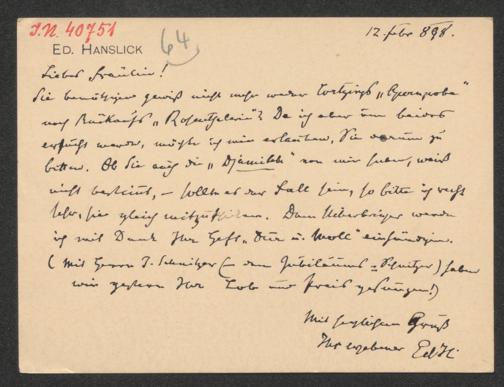 I.N. 40751
ED. HANSLICK
64
12 Febr 898.
Liebes Fräulein!
Sie benöthigen gewiß nicht mehr weder Lortzings „Opernprobe“
noch Reinhardts „ “? Da ich aber um beides
ersucht werde, möchte ich mir erlauben, Sie darum zu
bitten. Ob Sie auch die „Djamileh“ von mir haben, weiß
nicht bestimt, – sollte es der Fall sein, so bitte ich recht
sehr, sie gleich mitzuschicken. Dem Ueberbringer werde
ich mit Dank Ihr Heft „Dur u. Moll“ einhändigen.
(Mit Herrn J. Schnitzer (– dem Jubiläums-Schnitzer) haben
wir gestern Ihr Lob und Preis gesungen!)
Mit herzlichem Gruß
Ihr ergebener Ed H.